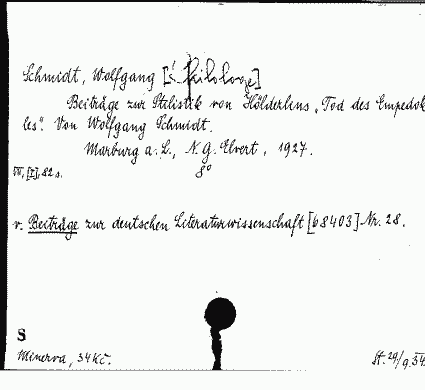 Schmidt, Wolfgang [filologe]
Beiträge zur Stilistik von Hölderlins „Tod des Empedok-
les“. Von Wolfgang Schmidt.
Marburg a. L., N. G. Elwert, 1927.
VII, [I], 82 s. 8°
v. Beiträge zur deutschen Literaturwissenschaft [68403] Nr. 28.
S
Minerva, 34 Kč. St. 29/9.34